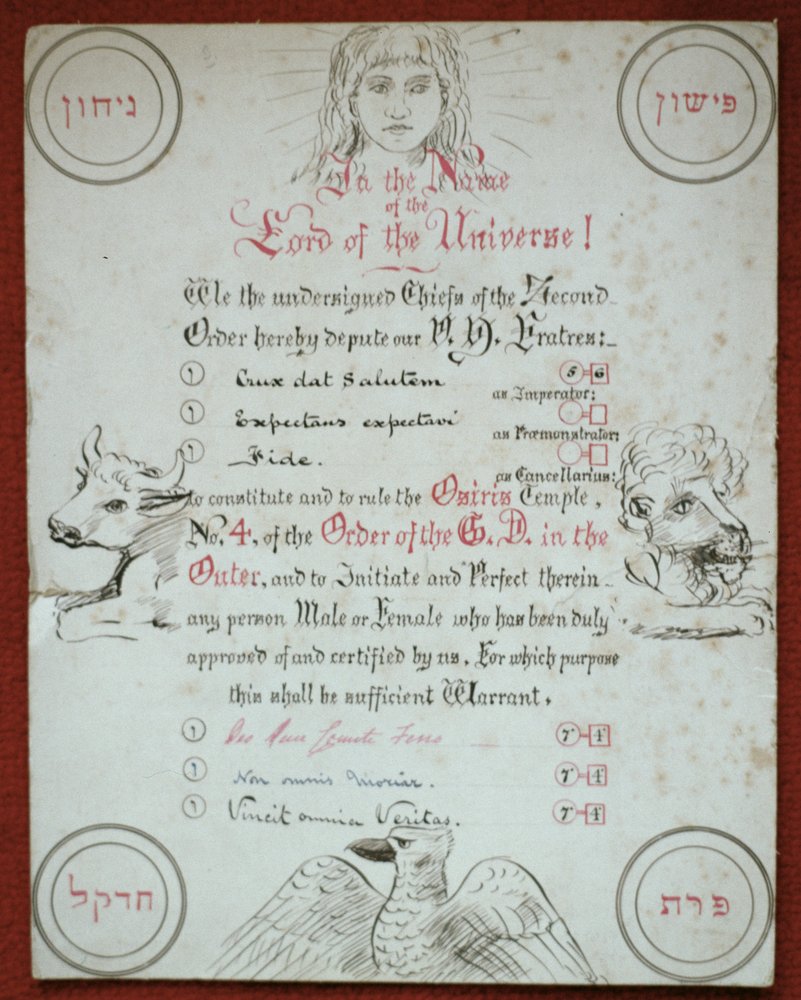 גיחון
פישון
In the Name
of the
Lord of the Universe!
We the undersigned Chiefs of the Second
Order hereby depute our V. H. Fratres:_
Crux dat Salutem 5=6
as Imperator:
Expectans expectavi
as Præmonstrator:
Fide.
as Cancellarius:
to constitute and to rule the Osiris Temple,
No. 4, of the Order of the G. D. in the
Outer, and to Initiate and Perfect therein
any person Male or Female who has been duly
approved of and certified by us. For which purpose
this shall be sufficient Warrant.
Deo Duce Comite Ferro 7=4
Non omnis Moriar. 7=4
Vincit omnia Veritas. 7=4
חדקל
פרת